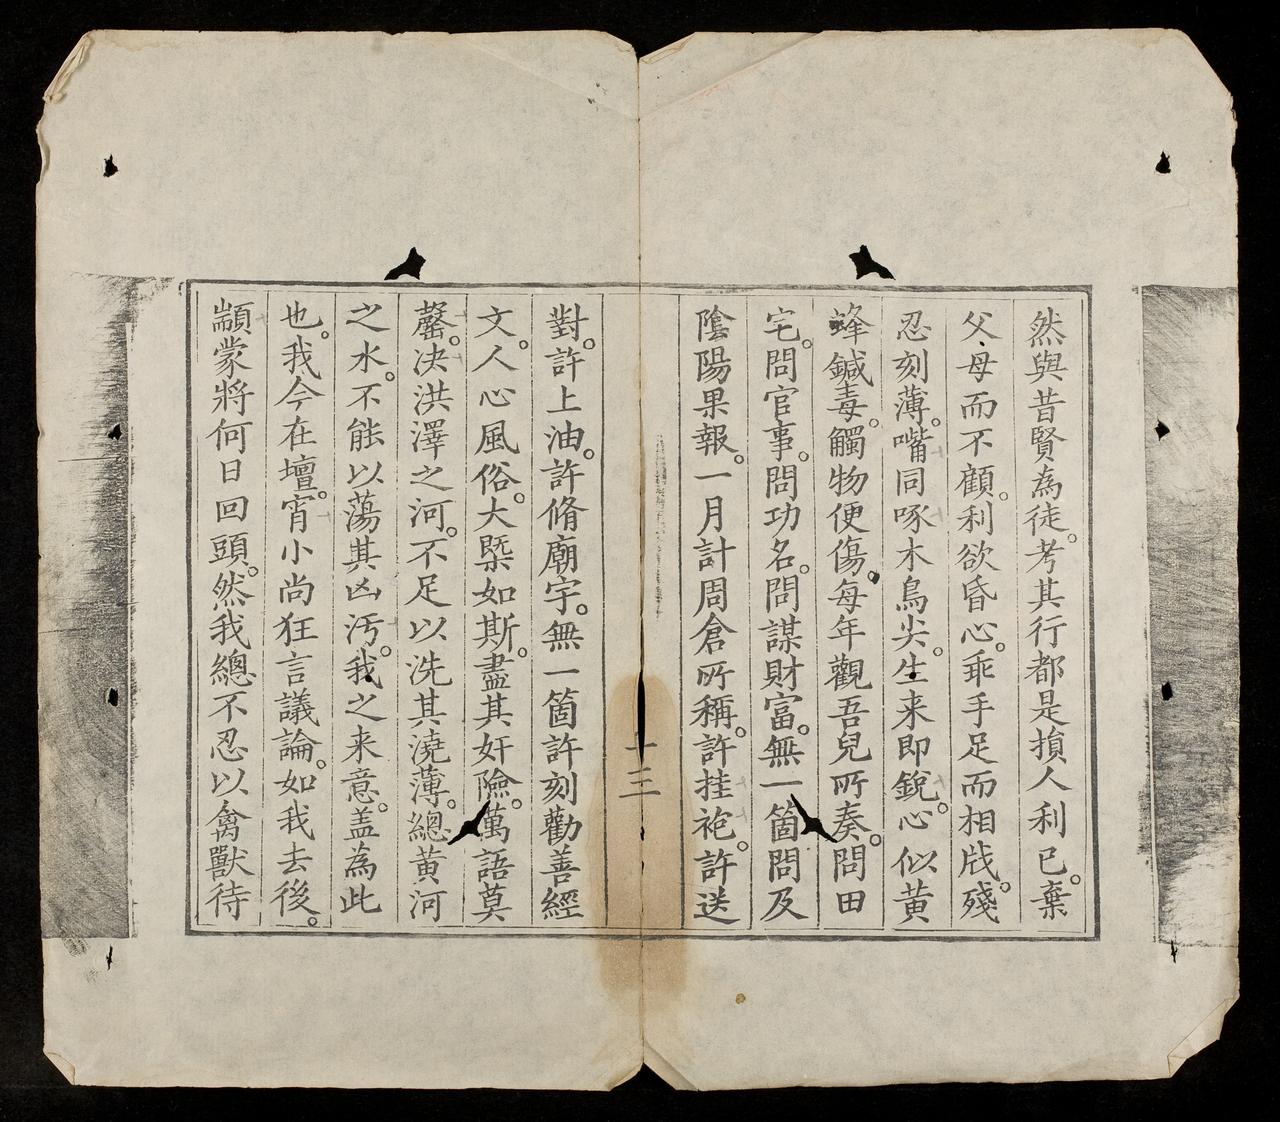 然與昔賢為徒。考其行都是損人利已。棄
父母而不顧。利欲昏心。乖手足而相戕。殘
忍刻薄。嘴同啄木鳥尖。生来即銳。心似黄
蜂鍼毒。觸物便傷。每年觀吾兒所奏。問田
宅。問官事。問功名。問謀財富。無一箇問及
陰陽果報。一月計周倉所稱。許挂袍。許送
十三
對。許上油。許脩廟宇。無一箇許刻勸善經
文。人心風俗。大槩如斯。盡其奸險。萬語莫
罄。决洪澤之河。不足以洗其澆薄。總黄河
之水。不能以蕩其凶汚。我之来意。盖為此
也。我今在壇。宵小尚狂言議論。如我去後。
顓蒙將何日回頭。然我總不忍以禽獸待